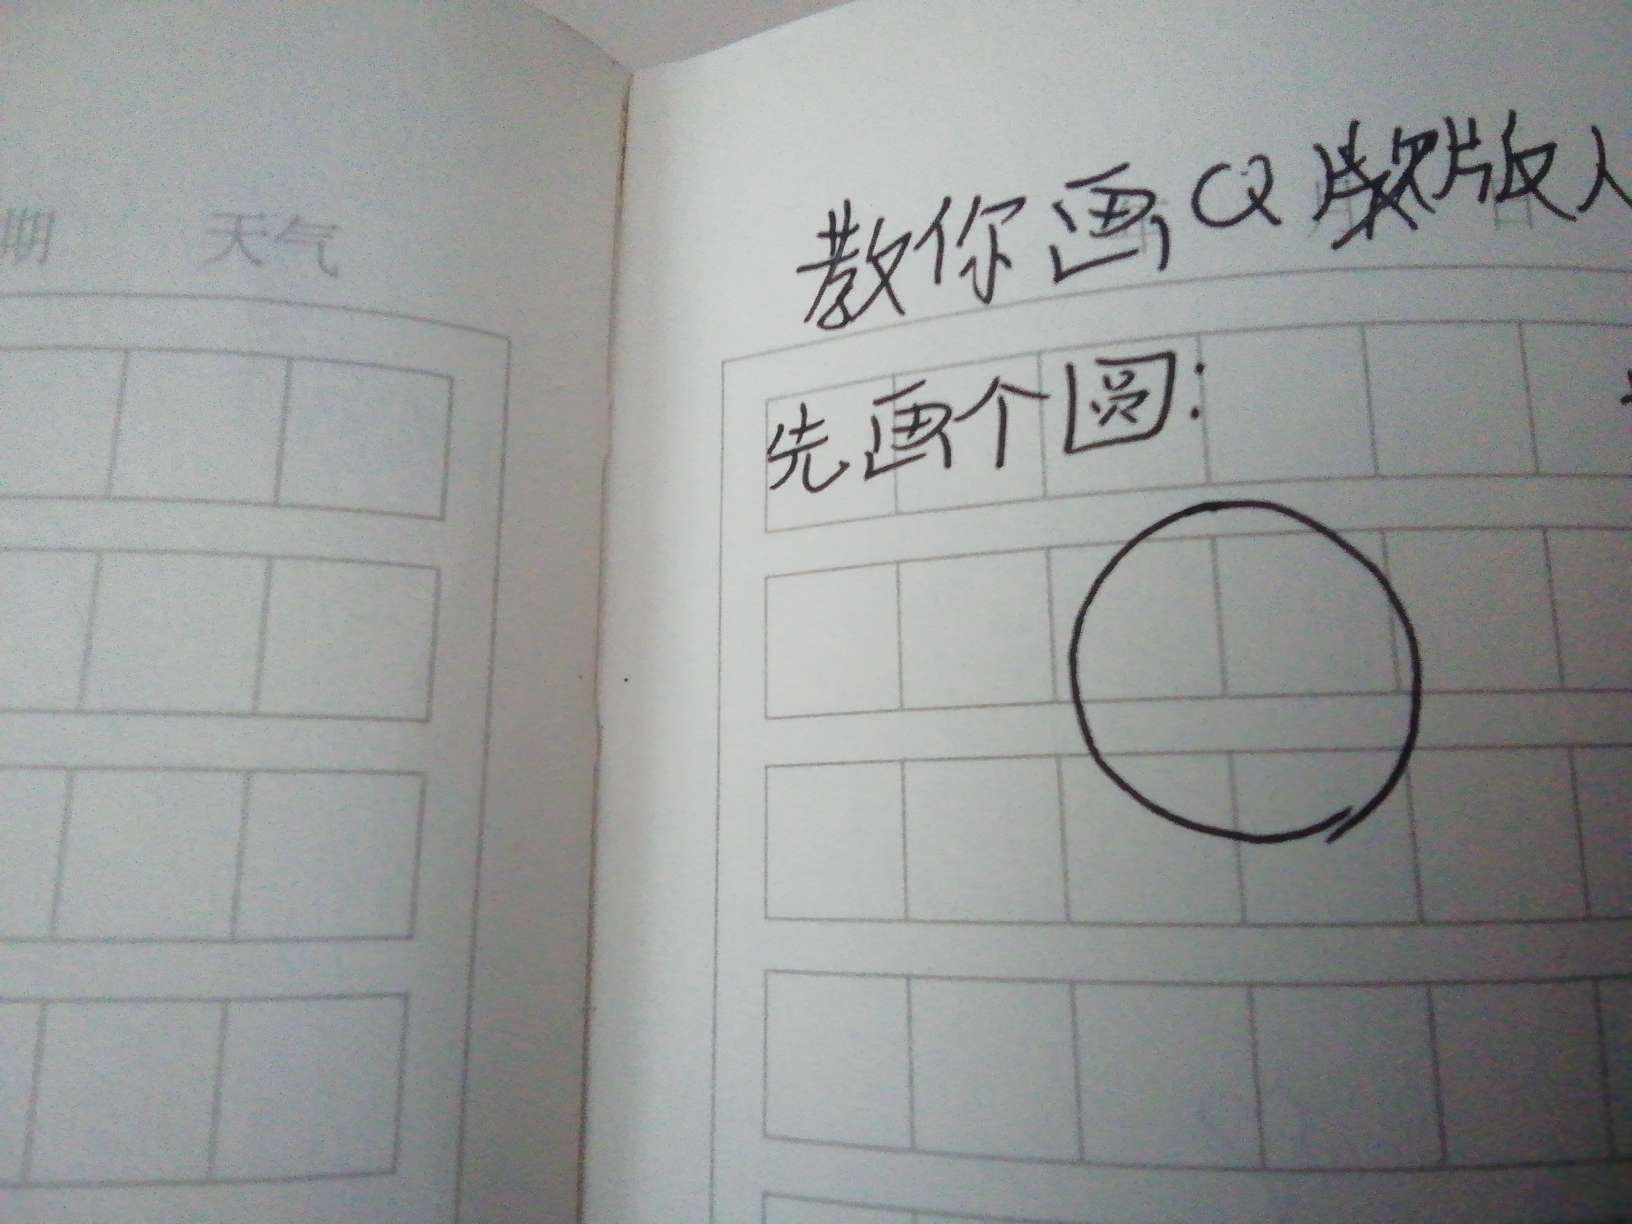 期 天气
教你画Q版人
先画个圆: